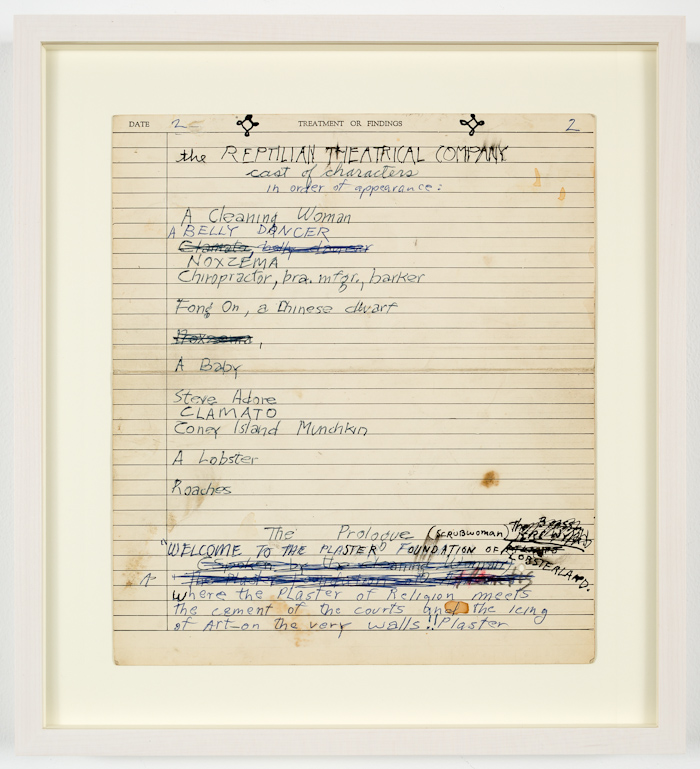 DATE 2 TREATMENT OR FINDINGS 2
the REPTILIAN THEATRICAL COMPANY
cast of characters
in order of appearance:
A Cleaning Woman
A BELLY DANCER
Clamato, belly dancer
NOXZEMA
Chiropractor, bra. mfgr., barker
Fong On, a Chinese dwarf
Noxzema,
A Baby
Steve Adore
CLAMATO
Coney Island Munchkin
A Lobster
Roaches
The Prologue (SCRUBWOMAN)
"WELCOME TO THE PLASTER" FOUNDATION OF LOBSTERLAND.
(spoken by the Cleaning Woman)
The Plaster Foundation of
where the Plaster of Religion meets
the cement of the courts and the icing
of Art—on the very walls!! Plaster